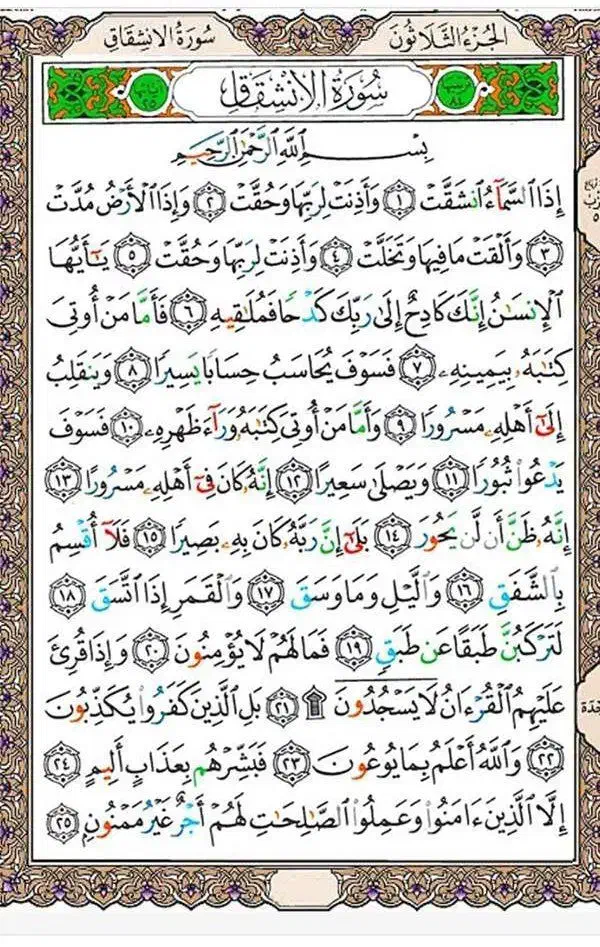 الجُزءُ الثَّلَاثُونَ سُورَةُ الانشِقَاقِ
سُورَةُ الانشِقَاقِ
بِسْمِ ٱللَّهِ ٱلرَّحْمَٰنِ ٱلرَّحِيمِ
إِذَا ٱلسَّمَآءُ ٱنشَقَّتْ ١ وَأَذِنَتْ لِرَبِّهَا وَحُقَّتْ ٢ وَإِذَا ٱلْأَرْضُ مُدَّتْ
٣ وَأَلْقَتْ مَا فِيهَا وَتَخَلَّتْ ٤ وَأَذِنَتْ لِرَبِّهَا وَحُقَّتْ ٥ يَٰٓأَيُّهَا
ٱلْإِنسَٰنُ إِنَّكَ كَادِحٌ إِلَىٰ رَبِّكَ كَدْحًا فَمُلَٰقِيهِ ٦ فَأَمَّا مَنْ أُوتِيَ
كِتَٰبَهُۥ بِيَمِينِهِۦ ٧ فَسَوْفَ يُحَاسَبُ حِسَابًا يَسِيرًا ٨ وَيَنقَلِبُ
إِلَىٰٓ أَهْلِهِۦ مَسْرُورًا ٩ وَأَمَّا مَنْ أُوتِيَ كِتَٰبَهُۥ وَرَآءَ ظَهْرِهِۦ ١٠ فَسَوْفَ
يَدْعُوا۟ ثُبُورًا ١١ وَيَصْلَىٰ سَعِيرًا ١٢ إِنَّهُۥ كَانَ فِىٓ أَهْلِهِۦ مَسْرُورًا ١٣
إِنَّهُۥ ظَنَّ أَن لَّن يَحُورَ ١٤ بَلَىٰٓ إِنَّ رَبَّهُۥ كَانَ بِهِۦ بَصِيرًا ١٥ فَلَآ أُقْسِمُ
بِٱلشَّفَقِ ١٦ وَٱلَّيْلِ وَمَا وَسَقَ ١٧ وَٱلْقَمَرِ إِذَا ٱتَّسَقَ ١٨
لَتَرْكَبُنَّ طَبَقًا عَن طَبَقٍ ١٩ فَمَا لَهُمْ لَا يُؤْمِنُونَ ٢٠ وَإِذَا قُرِئَ
عَلَيْهِمُ ٱلْقُرْءَانُ لَا يَسْجُدُونَ ۩ ٢١ بَلِ ٱلَّذِينَ كَفَرُوا۟ يُكَذِّبُونَ
٢٢ وَٱللَّهُ أَعْلَمُ بِمَا يُوعُونَ ٢٣ فَبَشِّرْهُم بِعَذَابٍ أَلِيمٍ ٢٤
إِلَّا ٱلَّذِينَ ءَامَنُوا۟ وَعَمِلُوا۟ ٱلصَّٰلِحَٰتِ لَهُمْ أَجْرٌ غَيْرُ مَمْنُونٍ ٢٥